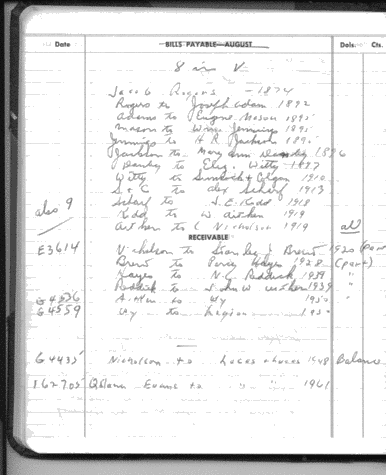 Date BILLS PAYABLE—AUGUST Dols. Cts.
8 in V
Jacob Rogers - 1874
Rogers to Joseph Adam 1892
Adams to Eugene Mason 1895
Mason to Wm. Jennings 1895
Jennings to H R Jackson 189
Jackson to Mary Ann Danley 1896
Danley to Eliz. Witty 1897
Witty to & 1910
S & C to Alex Scharf 1913
also 9 Scharf to J. E. Kidd 1918
Kidd to W Aitken 1919
Aitken to C Nicholson 1919 all
RECEIVABLE
E3614 Nicholson to Stanley J Brent 1920 (part)
Brent to Percy Hayes 1928 (part)
Hayes to N.C. Reddick 1939 "
Reddick to John W 1939 "
G4536 to 1950 "
G4559 to Legion 1950
G4435 Nicholson to 1948 Balance
162705 Evans to " " 1961